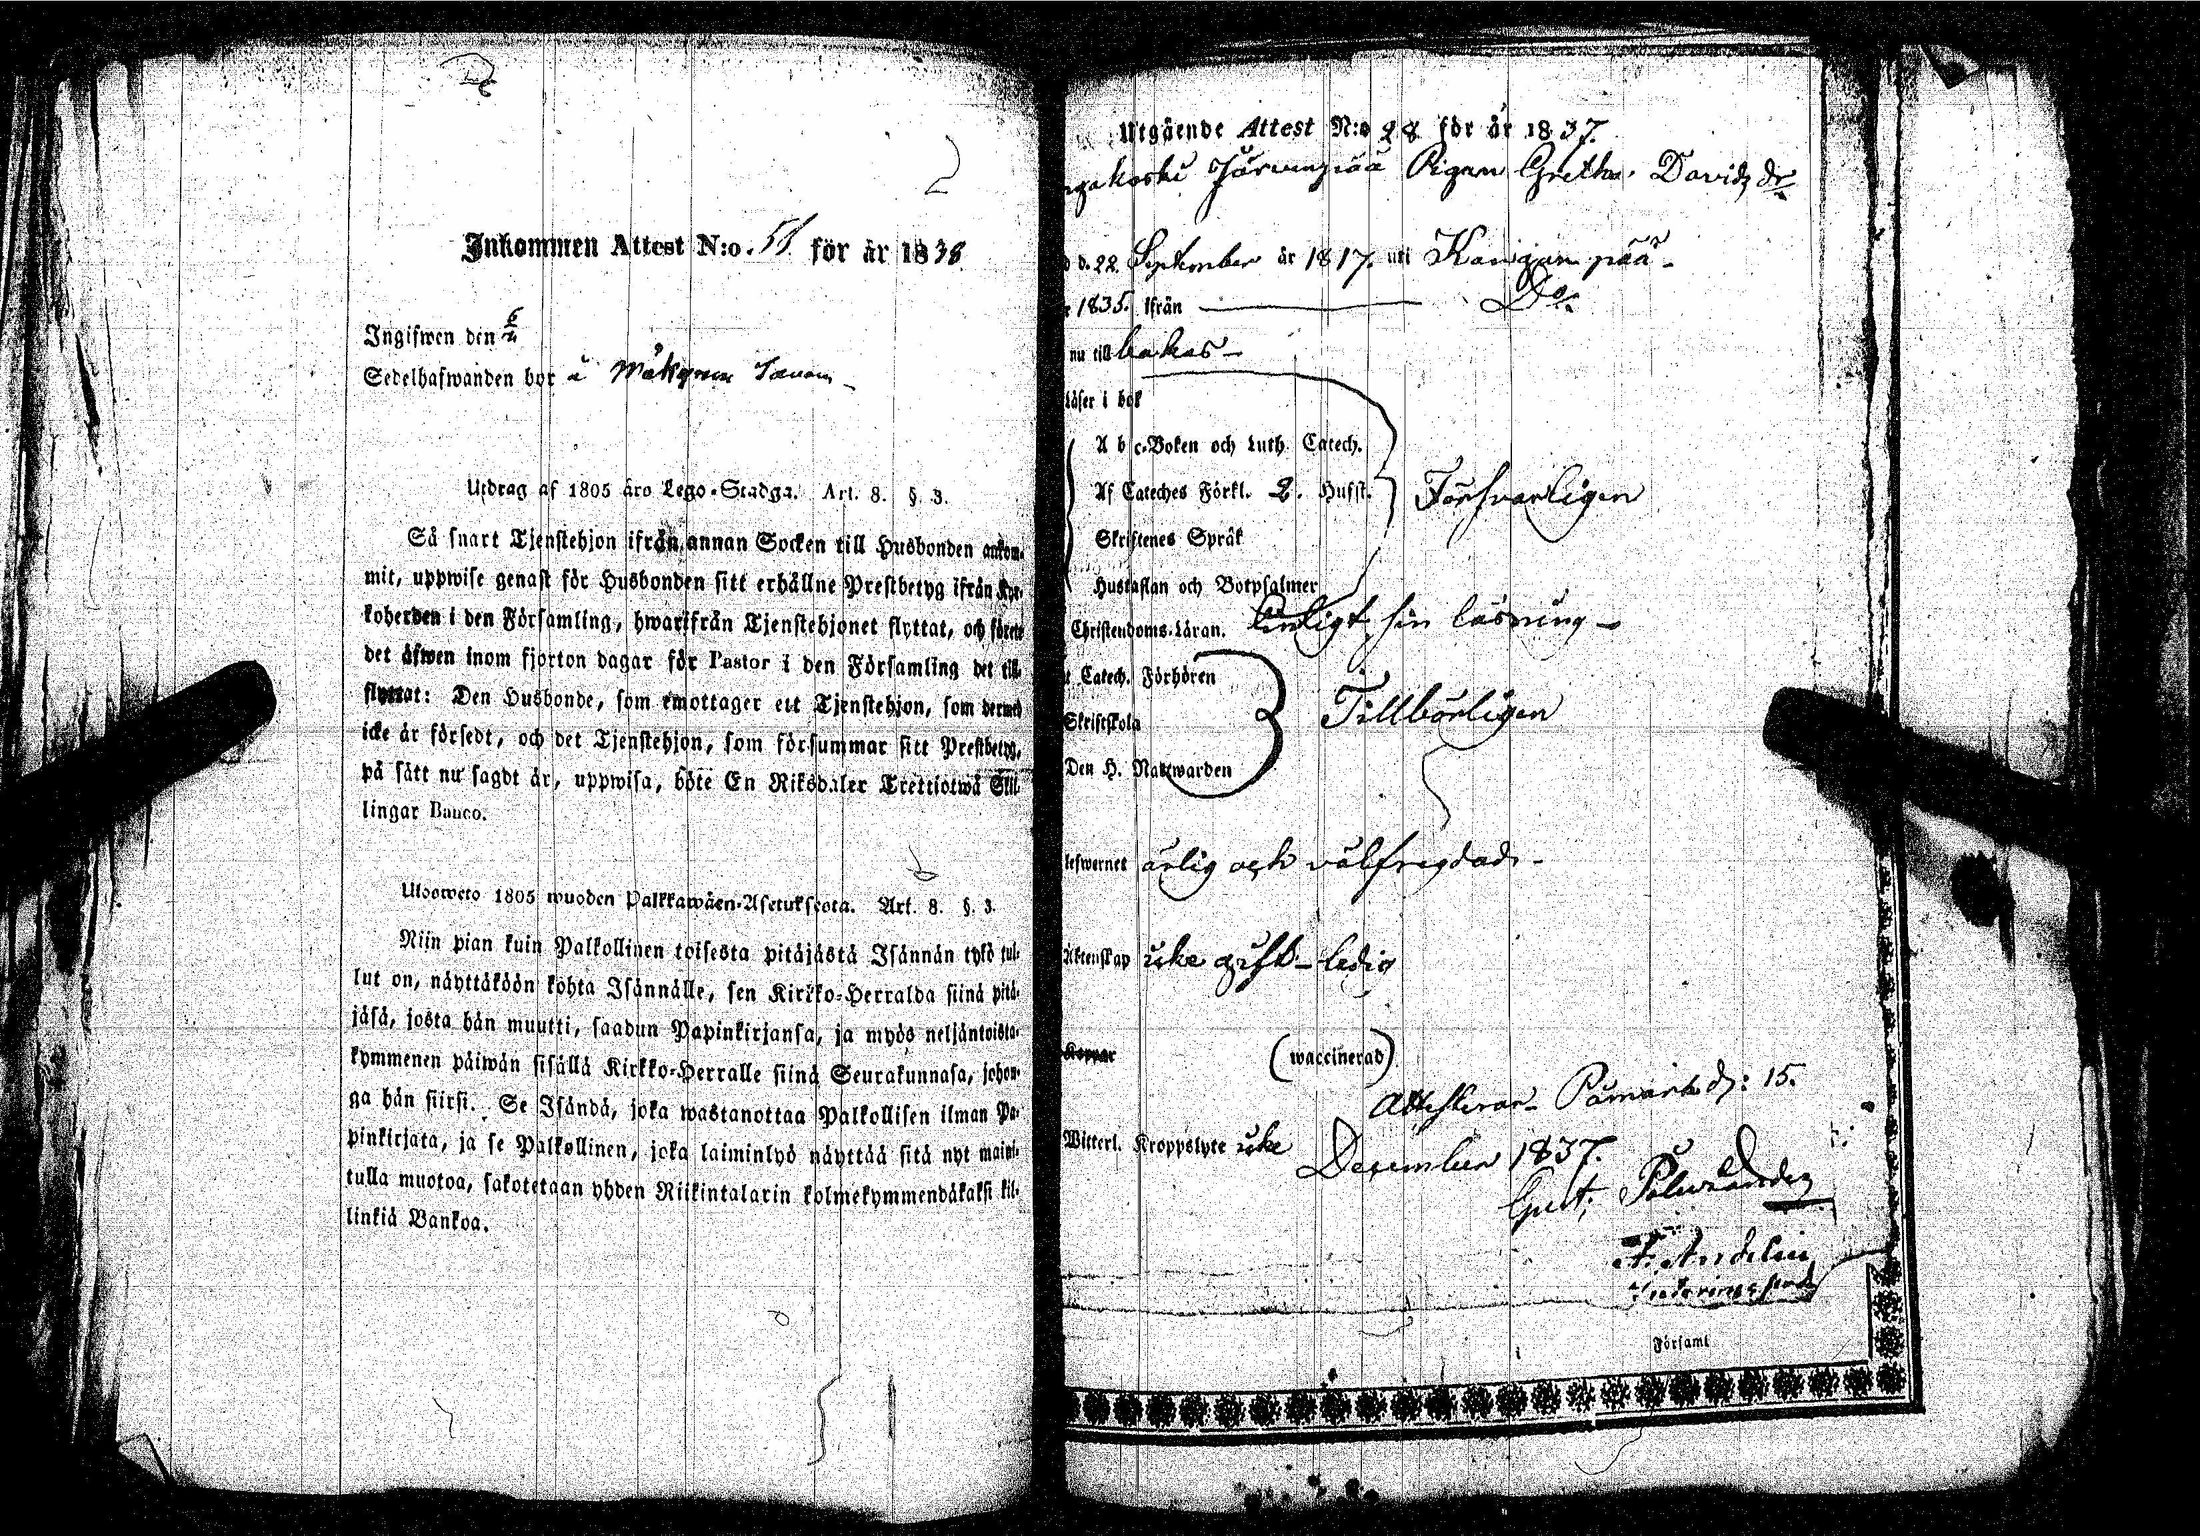 Inkommen Attest N:o. 51 för år 1838
Ingifwen den 6/2
Sedelhafwanden bor å
Utdrag af 1805 års Lego-Stadga. Art. 8. §. 3.
Så snart Tjenstehjon ifrån annan Socken till Husbonden ankom-
mit, uppwise genast för Husbonden sitt erhållne Prestbetyg ifrån Kyr-
koherden i den Församling, hwarifrån Tjenstehjonet flyttat, och förete
det äfwen inom fjorton dagar för Pastor i den Församling det till-
flyttat: Den Husbonde, som emottager ett Tjenstehjon, som dermed
icke är försedt, och det Tjenstehjon, som försummar sitt Prestbetyg,
på sätt nu sagdt är, uppwisa, böte En Riksdaler Trettiotwå Skil-
lingar Banco.
Uloosweto 1805 wuoden Palkkawäen-Asetuksesta. Art. 8. §. 3.
Niin pian kuin Palkollinen toisesta pitäjästä Isännän tykö tul-
lut on, näyttäköön kohta Isännälle, sen Kirkko-Herralda siinä pitä-
jäsä, josta hän muutti, saadun Papinkirjansa, ja myös neljäntoista-
kymmenen päiwän sisällä Kirkko-Herralle siinä Seurakunnasa, johon-
ga hän siirsi. Se Isändä, joka wastanottaa Palkollisen ilman Pa-
pinkirjata, ja se Palkollinen, joka laiminlyö näyttää sitä nyt maini-
tulla muotoa, sakotetaan yhden Riikintalarin kolmekymmendäkaksi kil-
linkiä Bankoa.
Utgående Attest N:o 28 för år 1837.
Järwenpää Pigan Gretha Davids dr
d. 22 September år 1817. uti Kangampää
1835. ifrån Do.
nu till bakas
läser i bok
A b c-Boken och Luth. Catech.
Af Cateches Förkl. 2. Hufst. Försvarligen
Skriftenes Språk
Hustaflan och Botpsalmer
Christendoms-Läran. Enligt sin läsning
Catech. Förhören
Skriftskola Tillbörligen
Den H. Nattwarden
lefwernet ärlig och välfregdad
Äktenskap icke gift - ledig
Koppar (waccinerad)
Attesterar Påmark d: 15.
Witterl. Kroppslyte icke December 1837.
Gust.
F. Andelin
Församl